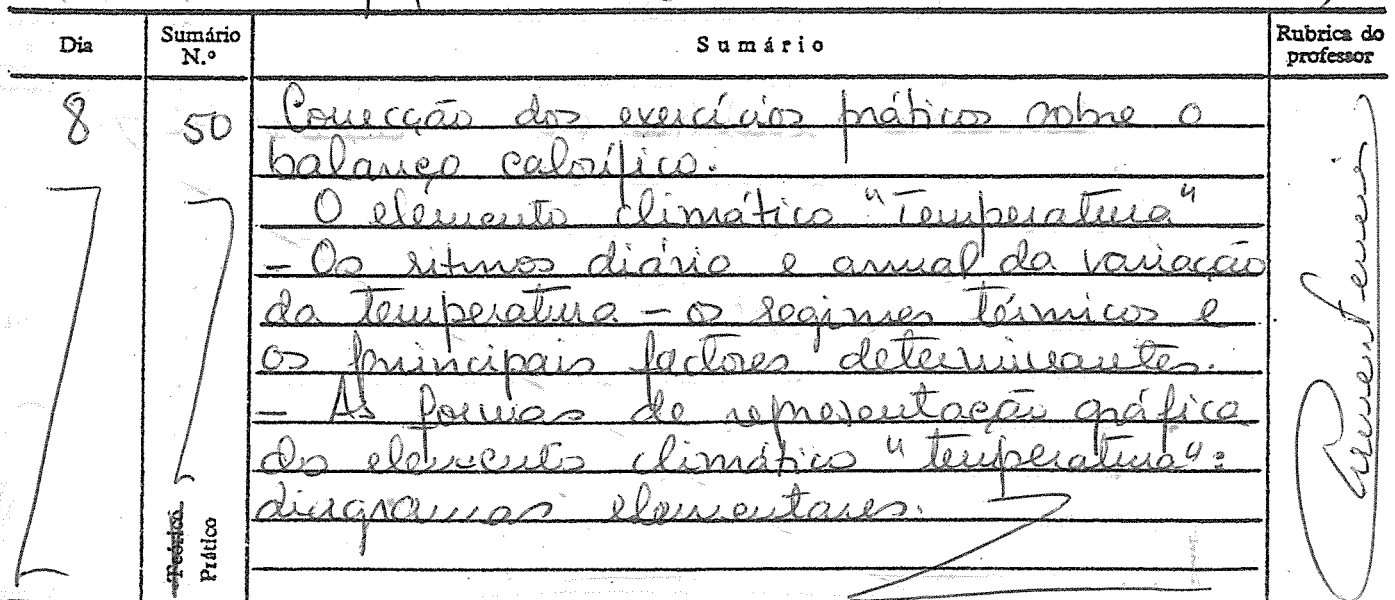 Dia Sumário N.º Sumário Rubrica do professor
8 50 Correcção dos exercícios práticos sobre o
balanço calorífico.
O elemento climático "Temperatura"
- Os ritmos diário e anual da variação
da temperatura - os regimes térmicos e
os principais factores determinantes.
- As formas de representação gráfica
do elemento climático "temperatura":
diagramas elementares.
Teórico
Prático